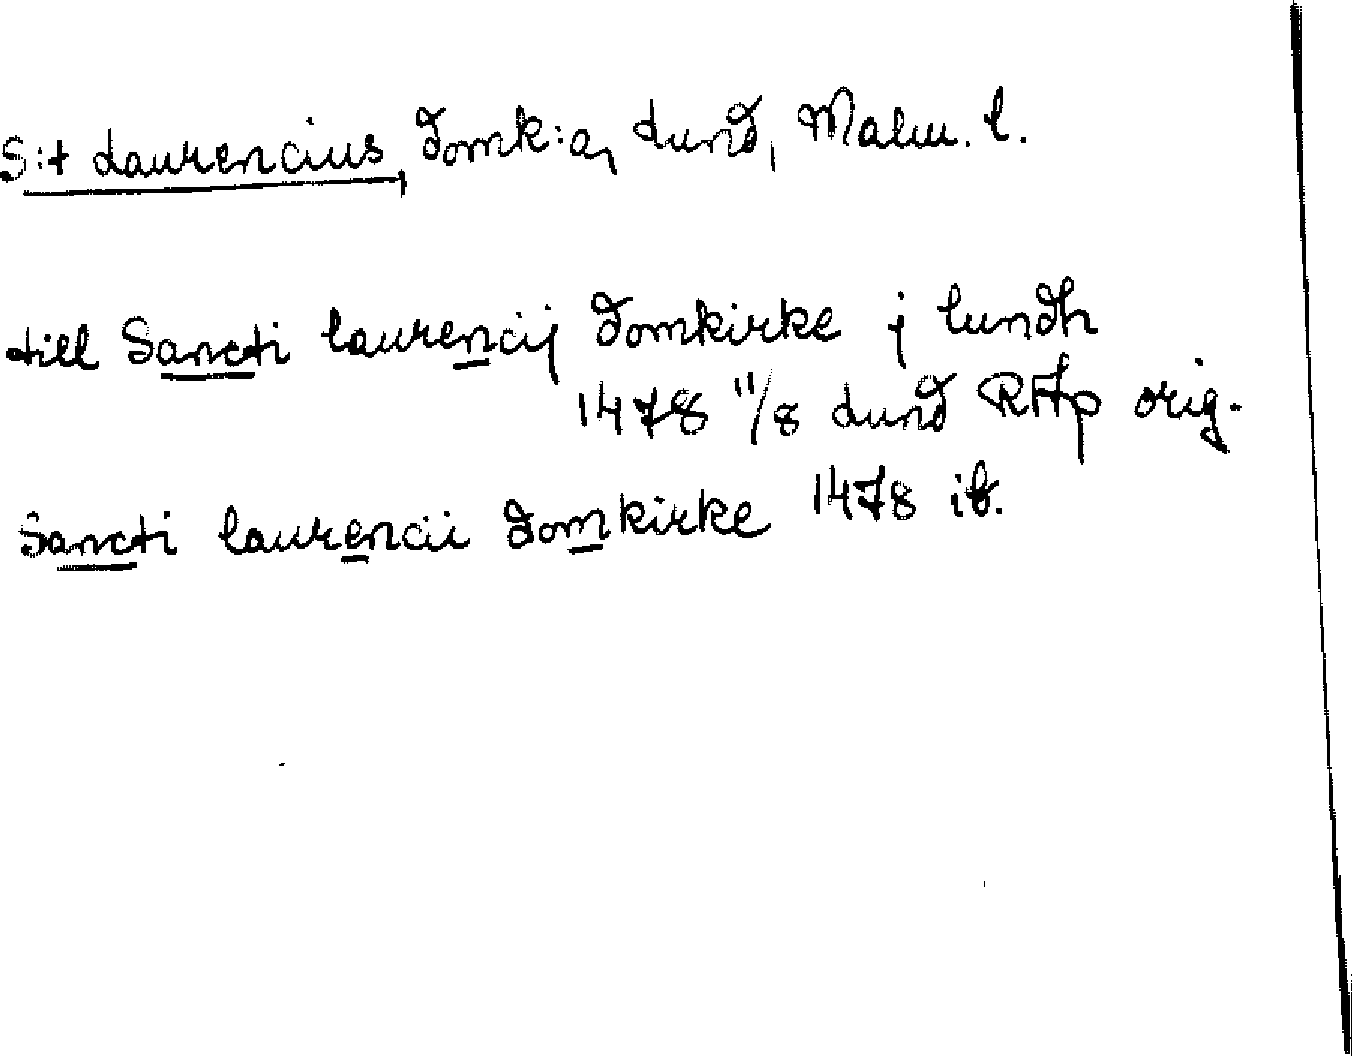 S:t Laurencius, domk:a, Lund, Malm. l.
till Sancti laurencij domkirke j lundh
1478 11/8 Lund RAp orig.
Sancti laurencii domkirke 1478 ib.